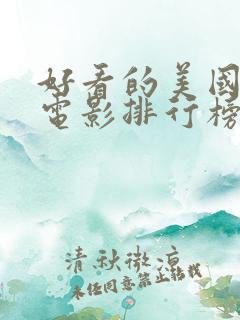 好看的美國
電影排行榜
清秋微涼
未经同意禁止转载